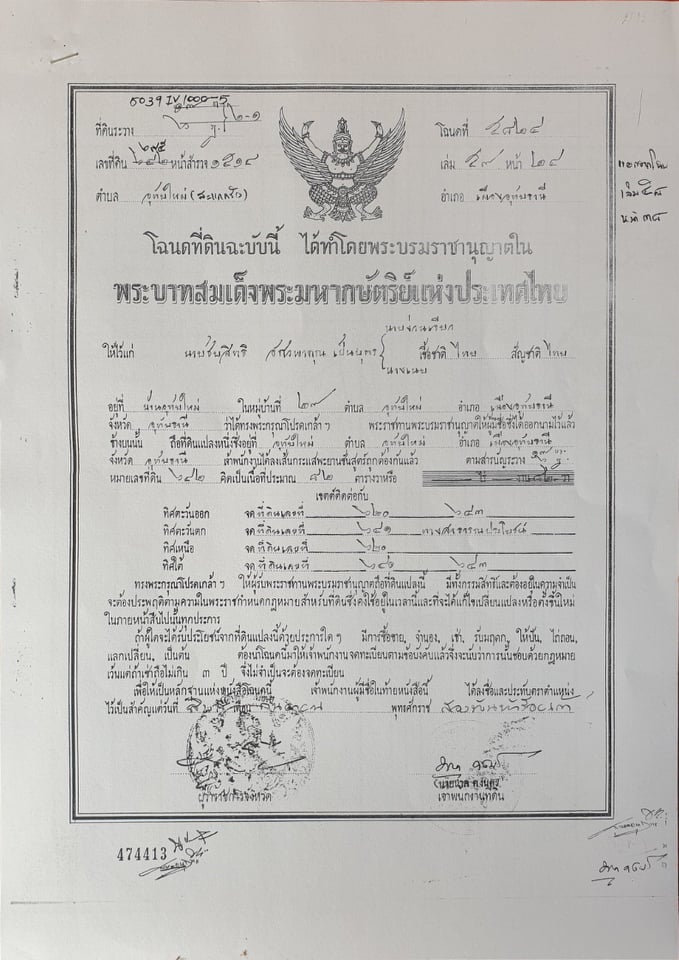 5039 IV 1000-5
ที่ดินระวาง ๒-๑
โฉนดที่ ๕๘๒๔
เลขที่ดิน ๖๔๒ หน้าสำรวจ ๑๕๑๔
เล่ม ๕๙ หน้า ๒๔
ตำบล อุทัยใหม่ (สะแกกรัง)
อำเภอ เมืองอุทัยธานี
โฉนดที่ดินฉะบับนี้ ได้ทำโดยพระบรมราชานุญาตใน
พระบาทสมเด็จพระมหากษัตริย์แห่งประเทศไทย
ให้ไว้แก่ เป็นบุตร เชื้อชาติ ไทย สัญชาติ ไทย
อยู่ที่ บ้านอุทัยใหม่ ในหมู่บ้านที่ ๒๙ ตำบล อุทัยใหม่ อำเภอ เมืองอุทัยธานี
จังหวัด อุทัยธานี ว่าได้ทรงพระกรุณาโปรดเกล้า ฯ พระราชทานพระบรมราชานุญาตให้มีชื่อซึ่งได้ออกนามไว้แล้ว
ข้างบนนั้น ถือที่ดินแปลงหนึ่งซึ่งอยู่ที่ อุทัยใหม่ ตำบล อุทัยใหม่ อำเภอ เมืองอุทัยธานี
จังหวัด อุทัยธานี เจ้าพนักงานได้ลงเส้นกระแสพะยานชั้นสูตรถูกต้องกันแล้ว ตามสารบัญระวาง
หมายเลขที่ดิน ๖๔๒ คิดเป็นเนื้อที่ประมาณ ๘๒ ตารางวาหรือ
เขตต์ติดต่อกับ
ทิศตะวันออก จด ที่ดินเลขที่ ๖๒๐ ๖๔๓
ทิศตะวันตก จด ที่ดินเลขที่ ๖๔๑ ทางสาธารณประโยชน์
ทิศเหนือ จด ที่ดินเลขที่ ๖๒๐
ทิศใต้ จด ที่ดินเลขที่ ๖๔๓
ทรงพระกรุณาโปรดเกล้า ฯ ให้ผู้รับพระราชทานพระบรมราชานุญาตถือที่ดินแปลงนี้ มีทั้งกรรมสิทธิและต้องอยู่ในความจำเป็น
จะต้องประพฤติตามความในพระราชกำหนดกฎหมายสำหรับที่ดินซึ่งคงใช้อยู่ในเวลานี้และที่จะได้แก้ไขเปลี่ยนแปลงหรือตั้งขึ้นใหม่
ในภายหน้าสืบไปนั้นทุกประการ
ถ้าผู้ใดจะได้รับประโยชน์จากที่ดินแปลงนี้ด้วยประการใด ๆ มีการซื้อขาย, จำนอง, เช่า, รับมฤดก, ให้ปัน, ไถ่ถอน,
แลกเปลี่ยน, เป็นต้น ต้องนำโฉนดนี้มาให้เจ้าพนักงานจดทะเบียนตามข้อบังคับแล้วจึ่งจะนับว่าการนั้นชอบด้วยกฎหมาย
เว้นแต่ถ้าเช่าถือไม่เกิน ๓ ปี จึ่งไม่จำเป็นจะต้องจดทะเบียน
เพื่อให้เป็นหลักฐานแห่งหนังสือโฉนดนี้ เจ้าพนักงานผู้มีชื่อในท้ายหนังสือนี้ ได้ลงชื่อและประทับตราตำแหน่ง
ไว้เป็นสำคัญแต่วันที่ พุทธศักราช
ผู้ว่าราชการจังหวัด
เจ้าพนักงานที่ดิน
474413